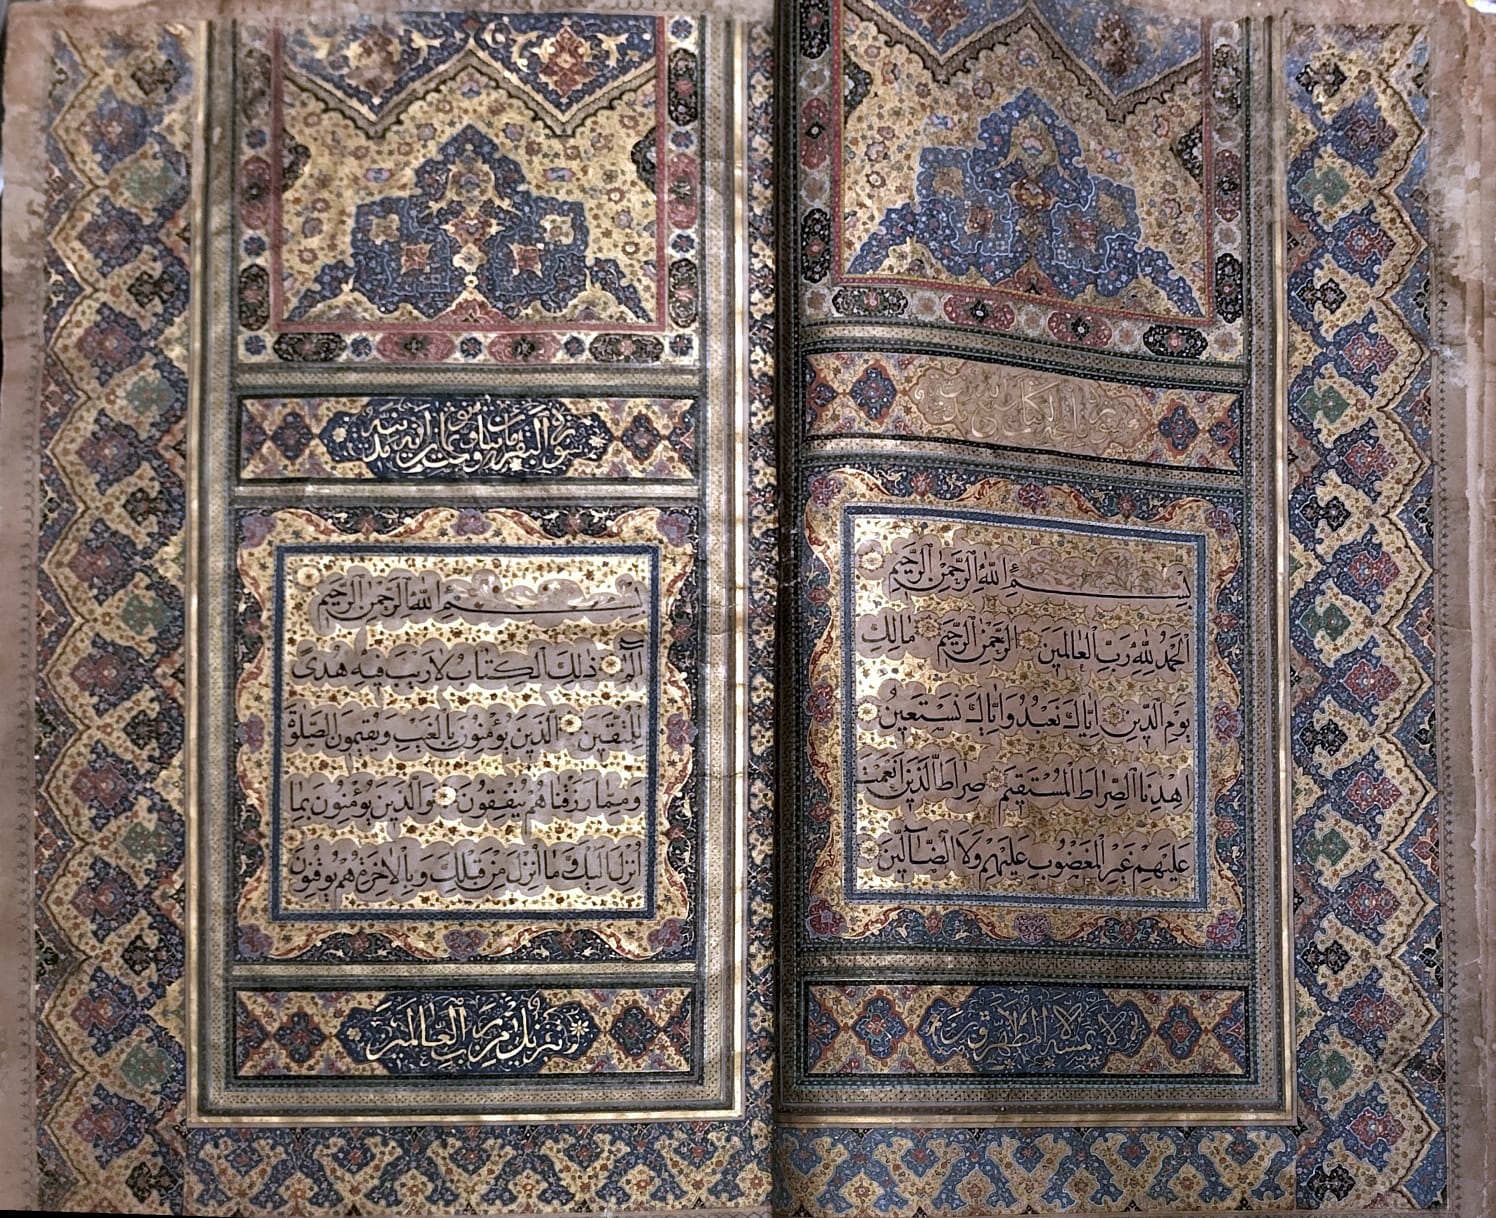 بِسْمِ اللّٰهِ الرَّحْمٰنِ الرَّحِيمِ
اَلْحَمْدُ لِلّٰهِ رَبِّ الْعَالَمِينَ الرَّحْمٰنِ الرَّحِيمِ مَالِكِ
يَوْمِ الدِّينِ اِيَّاكَ نَعْبُدُ وَاِيَّاكَ نَسْتَعِينُ
اِهْدِنَا الصِّرَاطَ الْمُسْتَقِيمَ صِرَاطَ الَّذِينَ اَنْعَمْتَ
عَلَيْهِمْ غَيْرِ الْمَغْضُوبِ عَلَيْهِمْ وَلَا الضَّآلِّينَ
لا يمسه الا المطهرون
سورة البقرة مائتان وثمانون آية مدنية
بِسْمِ اللّٰهِ الرَّحْمٰنِ الرَّحِيمِ
الٓمٓ ذٰلِكَ الْكِتَابُ لَا رَيْبَ فِيهِ هُدًى
لِلْمُتَّقِينَ الَّذِينَ يُؤْمِنُونَ بِالْغَيْبِ وَيُقِيمُونَ الصَّلٰوةَ
وَمِمَّا رَزَقْنَاهُمْ يُنْفِقُونَ وَالَّذِينَ يُؤْمِنُونَ بِمَا
اُنْزِلَ اِلَيْكَ وَمَا اُنْزِلَ مِنْ قَبْلِكَ وَبِالْاٰخِرَةِ هُمْ يُوقِنُونَ
تنزيل من رب العالمين